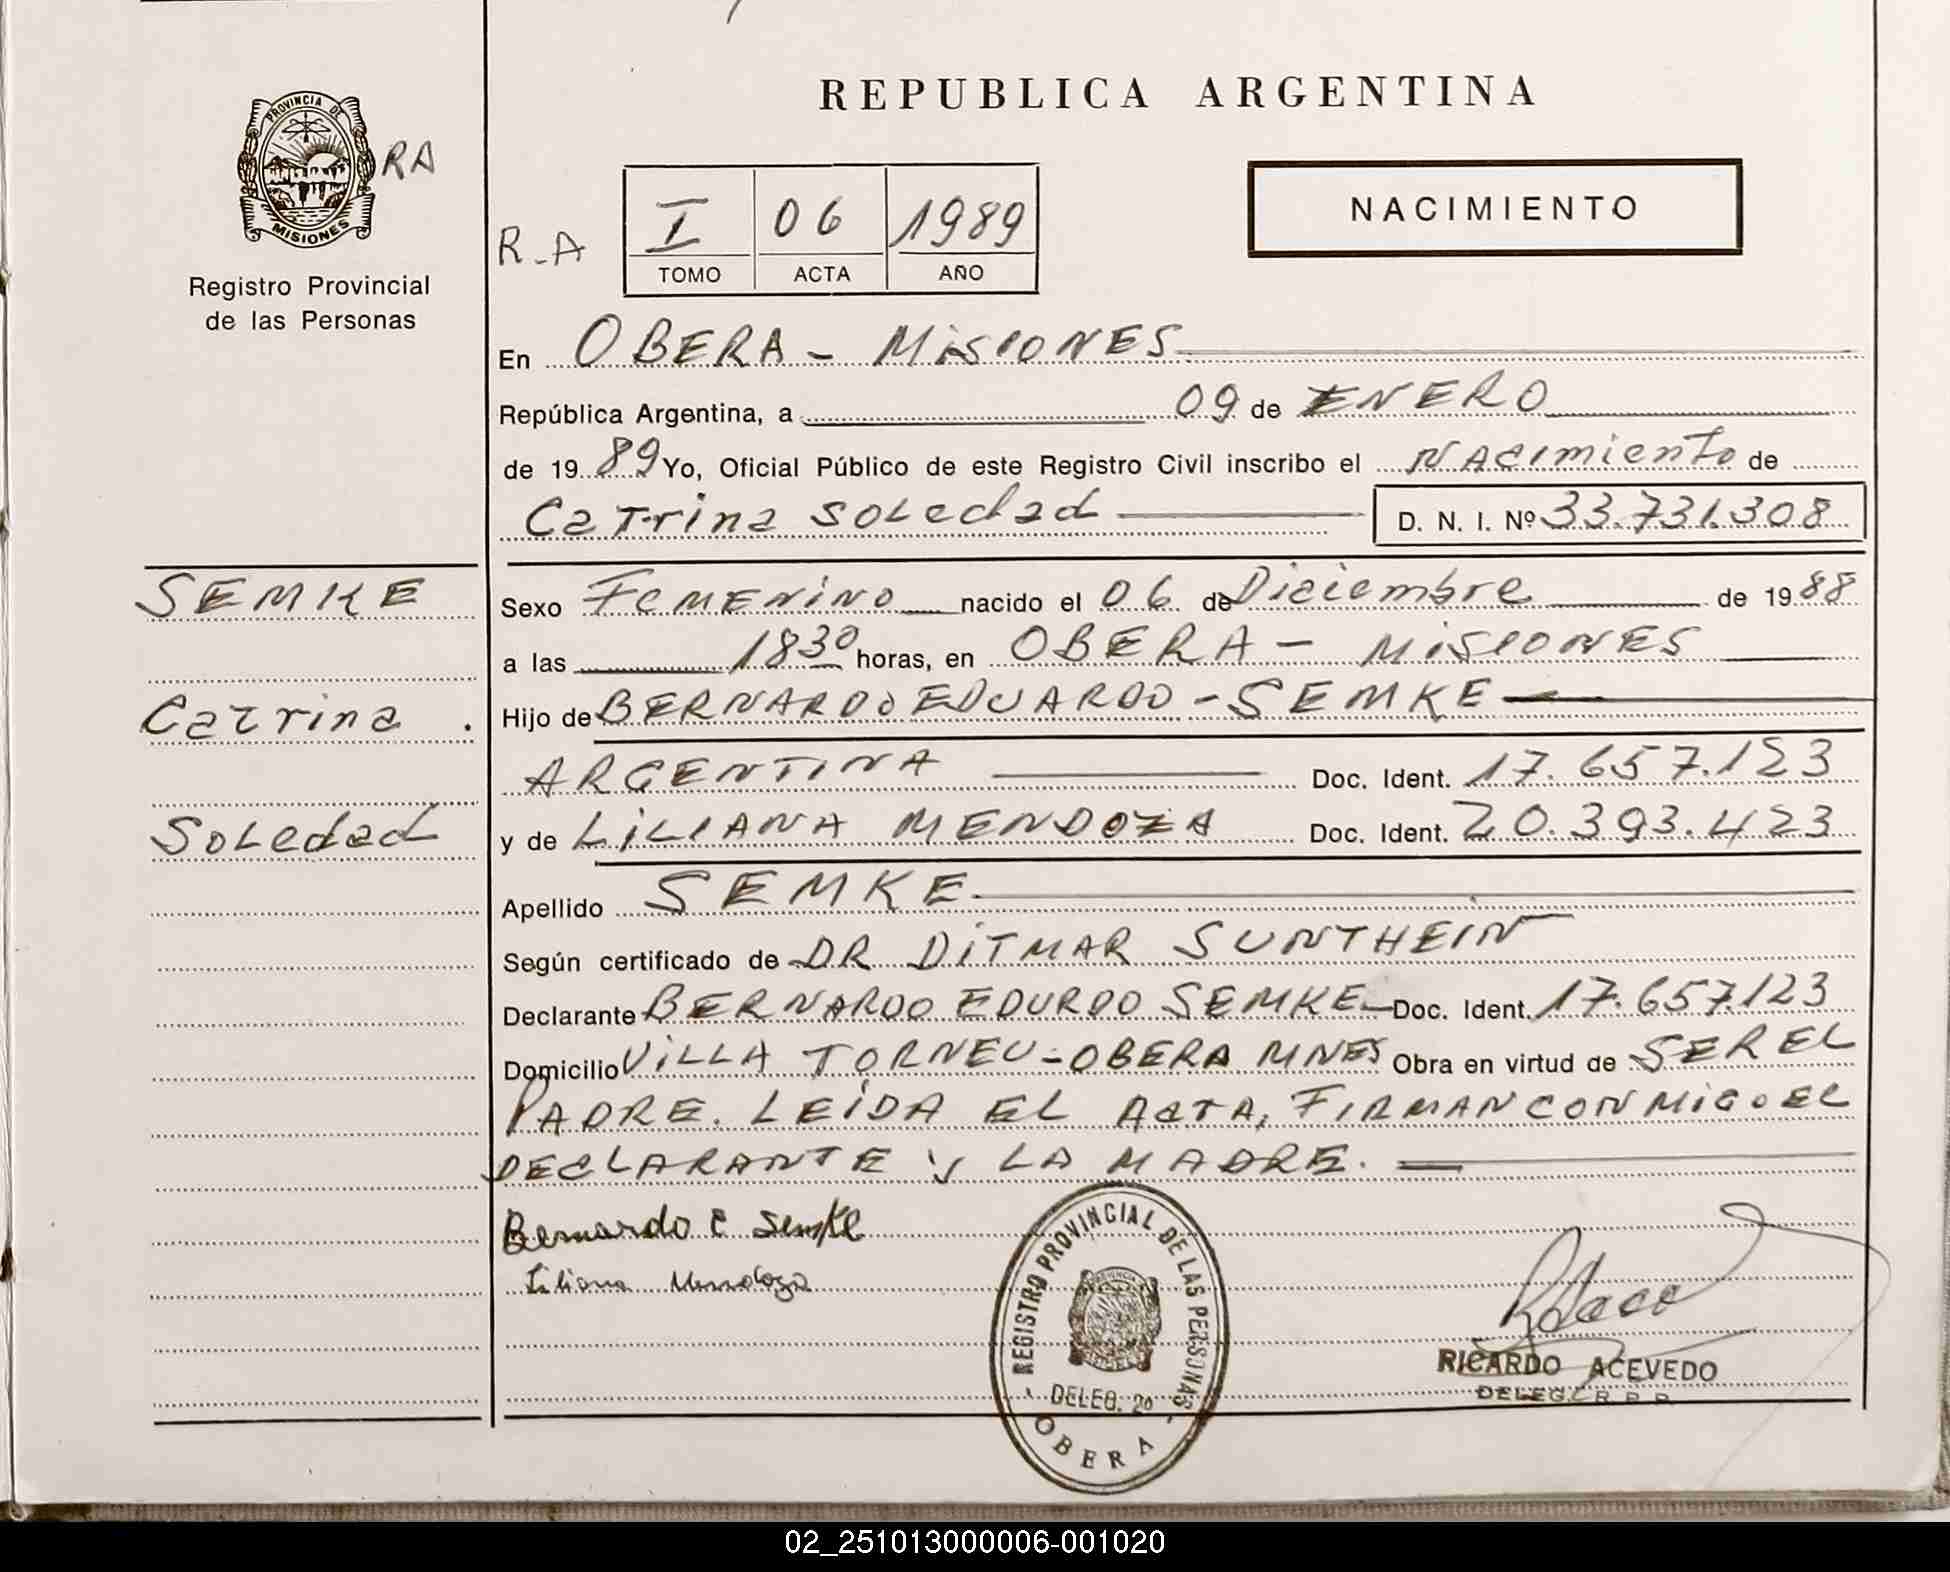 REPUBLICA ARGENTINA
PROVINCIA DE
MISIONES
RA
Registro Provincial
de las Personas
R.A
I 06 1989
TOMO ACTA AÑO
NACIMIENTO
En OBERA - MISIONES
República Argentina, a 09 de ENERO
de 1989 Yo, Oficial Público de este Registro Civil inscribo el Nacimiento de
Catrina Soledad D. N. I. Nº 33.731.308
SEMKE
Catrina .
Soledad
Sexo Femenino nacido el 06 de Diciembre de 1988
a las 1830 horas, en OBERA - MISIONES
Hijo de BERNARDO EDUARDO - SEMKE
ARGENTINA Doc. Ident. 17.657.123
y de LILIANA MENDOZA Doc. Ident. 20.393.423
Apellido SEMKE
Según certificado de DR DITMAR SUNTHEIN
Declarante BERNARDO EDURDO SEMKE Doc. Ident. 17.657.123
Domicilio VILLA TORNEU - OBERA MNES Obra en virtud de SER EL
PADRE. LEIDA EL ACTA, FIRMAN CONMIGO EL
DECLARANTE y LA MADRE.
Bernardo E Semke
Liliana Mendoza
REGISTRO PROVINCIAL DE LAS PERSONAS
DELEG. 20
OBERA
RICARDO ACEVEDO
DELEG. R. P. P.
02_251013000006-001020